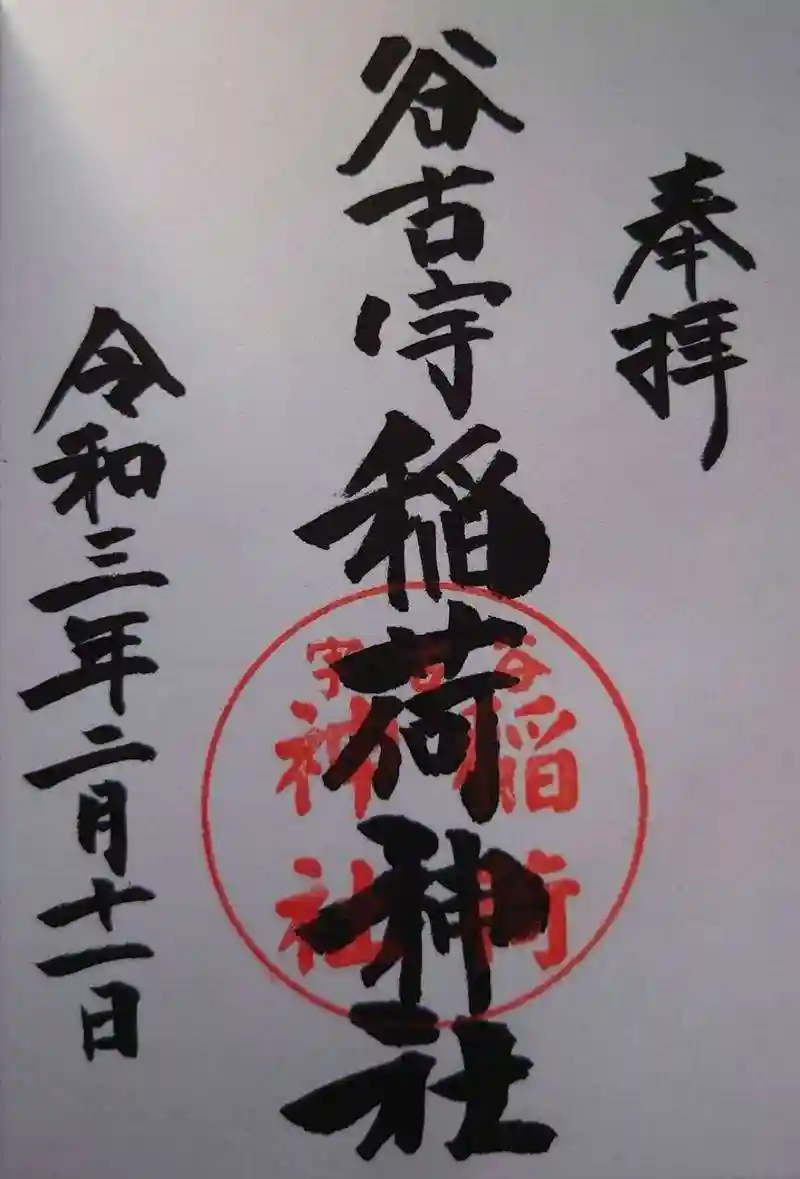 奉拝
谷古宇稲荷神社
谷古宇
稲荷
神社
令和三年二月十一日